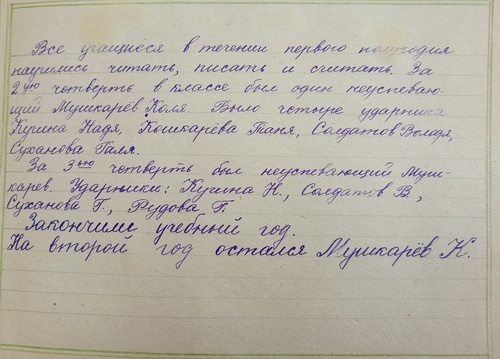 Все учащиеся в течении первого полугодия
научились читать, писать и считать. За
2ую четверть в классе был один неуспеваю-
щий Мушкарёв Коля. Было четыре ударника
Кугина Надя, Кошкарёва Таня, Солдатов Володя,
Суханова Галя.
За 3ью четверть был неуспевающий Муш-
карев. Ударники: Кугина Н., Солдатов В.,
Суханова Г., Рудова Г.
Закончили учебный год.
На второй год остался Мушкарёв К.